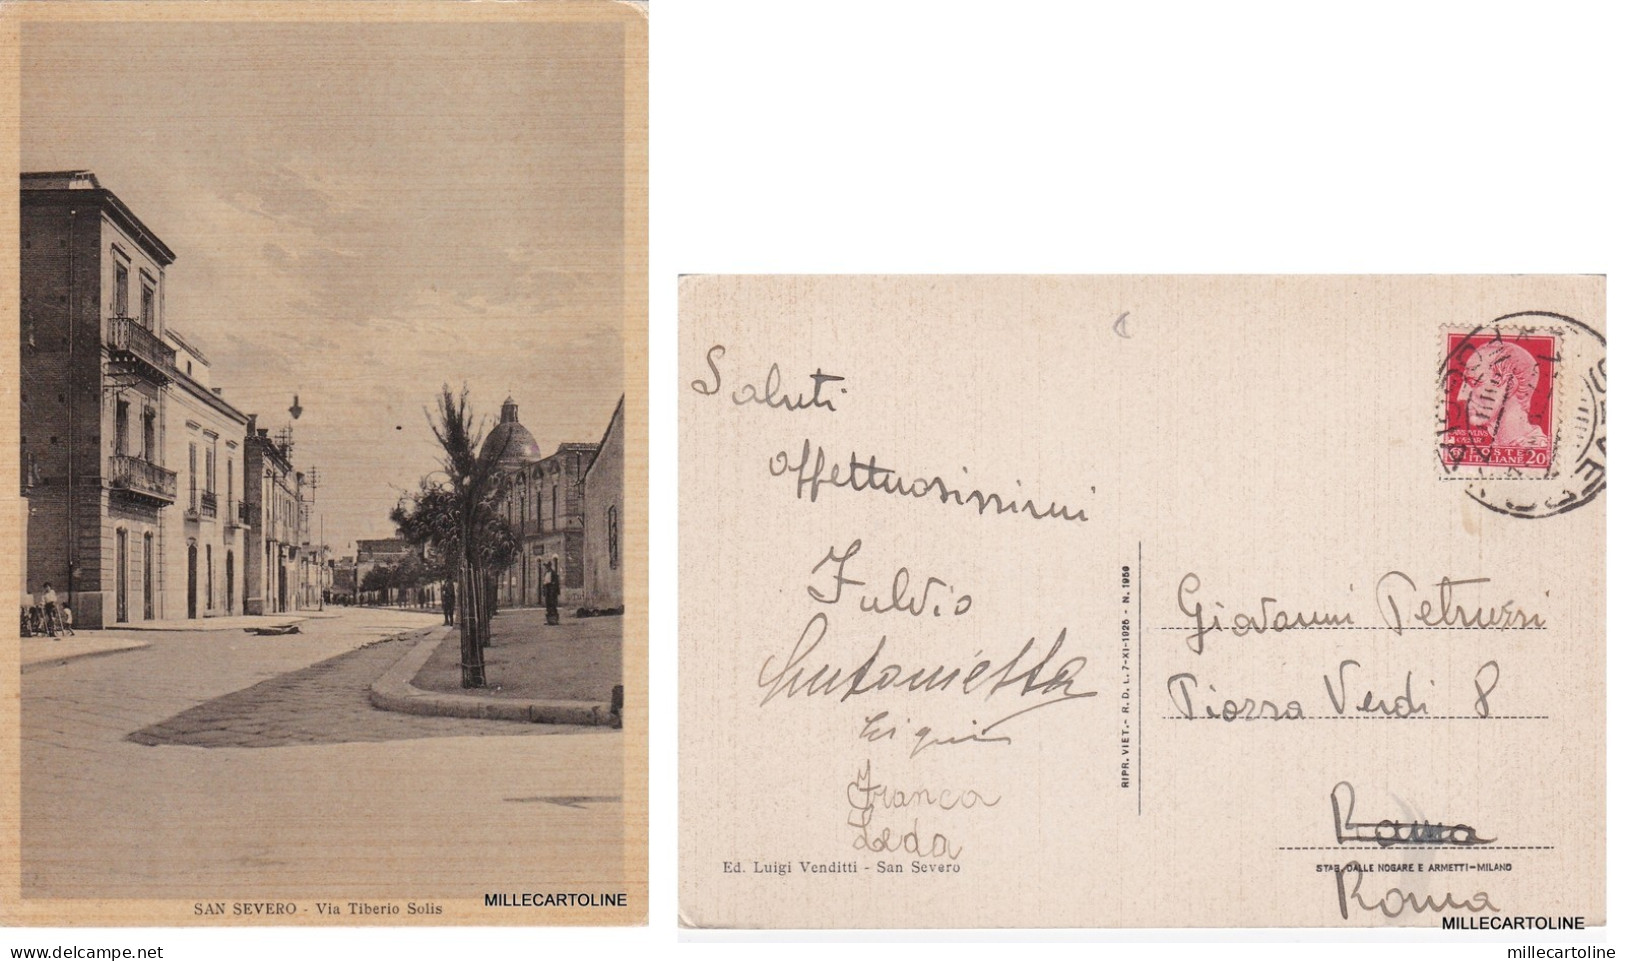 SAN SEVERO - Via Tiberio Solis
MILLECARTOLINE
Saluti
affettuosissimi
Fulvio
Antonietta
Franca
Leda
Ed. Luigi Venditti - San Severo
RIPR. VIET.- R. D. L. 7-XI-1925 - N. 1959
POSTE
ITALIANE 20
Giovanni Petruzzi
Piazza Verdi 8
Roma
STAB. DALLE NOGARE E ARMETTI-MILANO
Roma
MILLECARTOLINE
millecartoline